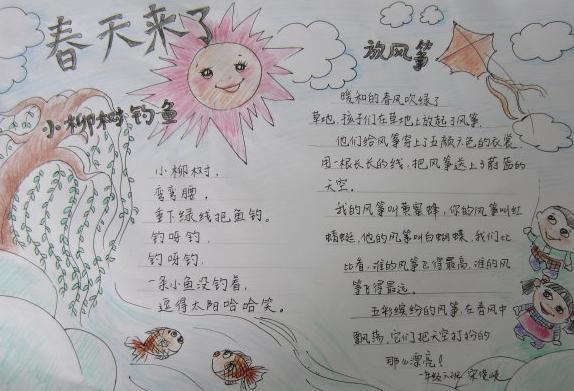 春天来了
小柳树钓鱼
小柳树，
弯弯腰，
垂下绿线把鱼钓。
钓呀钓，
钓呀钓，
一条小鱼没钓着，
逗得太阳哈哈笑。
放风筝
暖和的春风吹绿了
草地，孩子们在草地上放起了风筝。
他们给风筝穿上了五颜六色的衣裳
用一根长长的线，把风筝送上了蔚蓝的
天空。
我的风筝叫黄蜜蜂，你的风筝叫红
蜻蜓，他的风筝叫白蝴蝶，我们比
比看，谁的风筝飞得最高，谁的风
筝飞得最远。
五彩缤纷的风筝，在春风中
飘荡，它们把天空打扮的
那么漂亮！